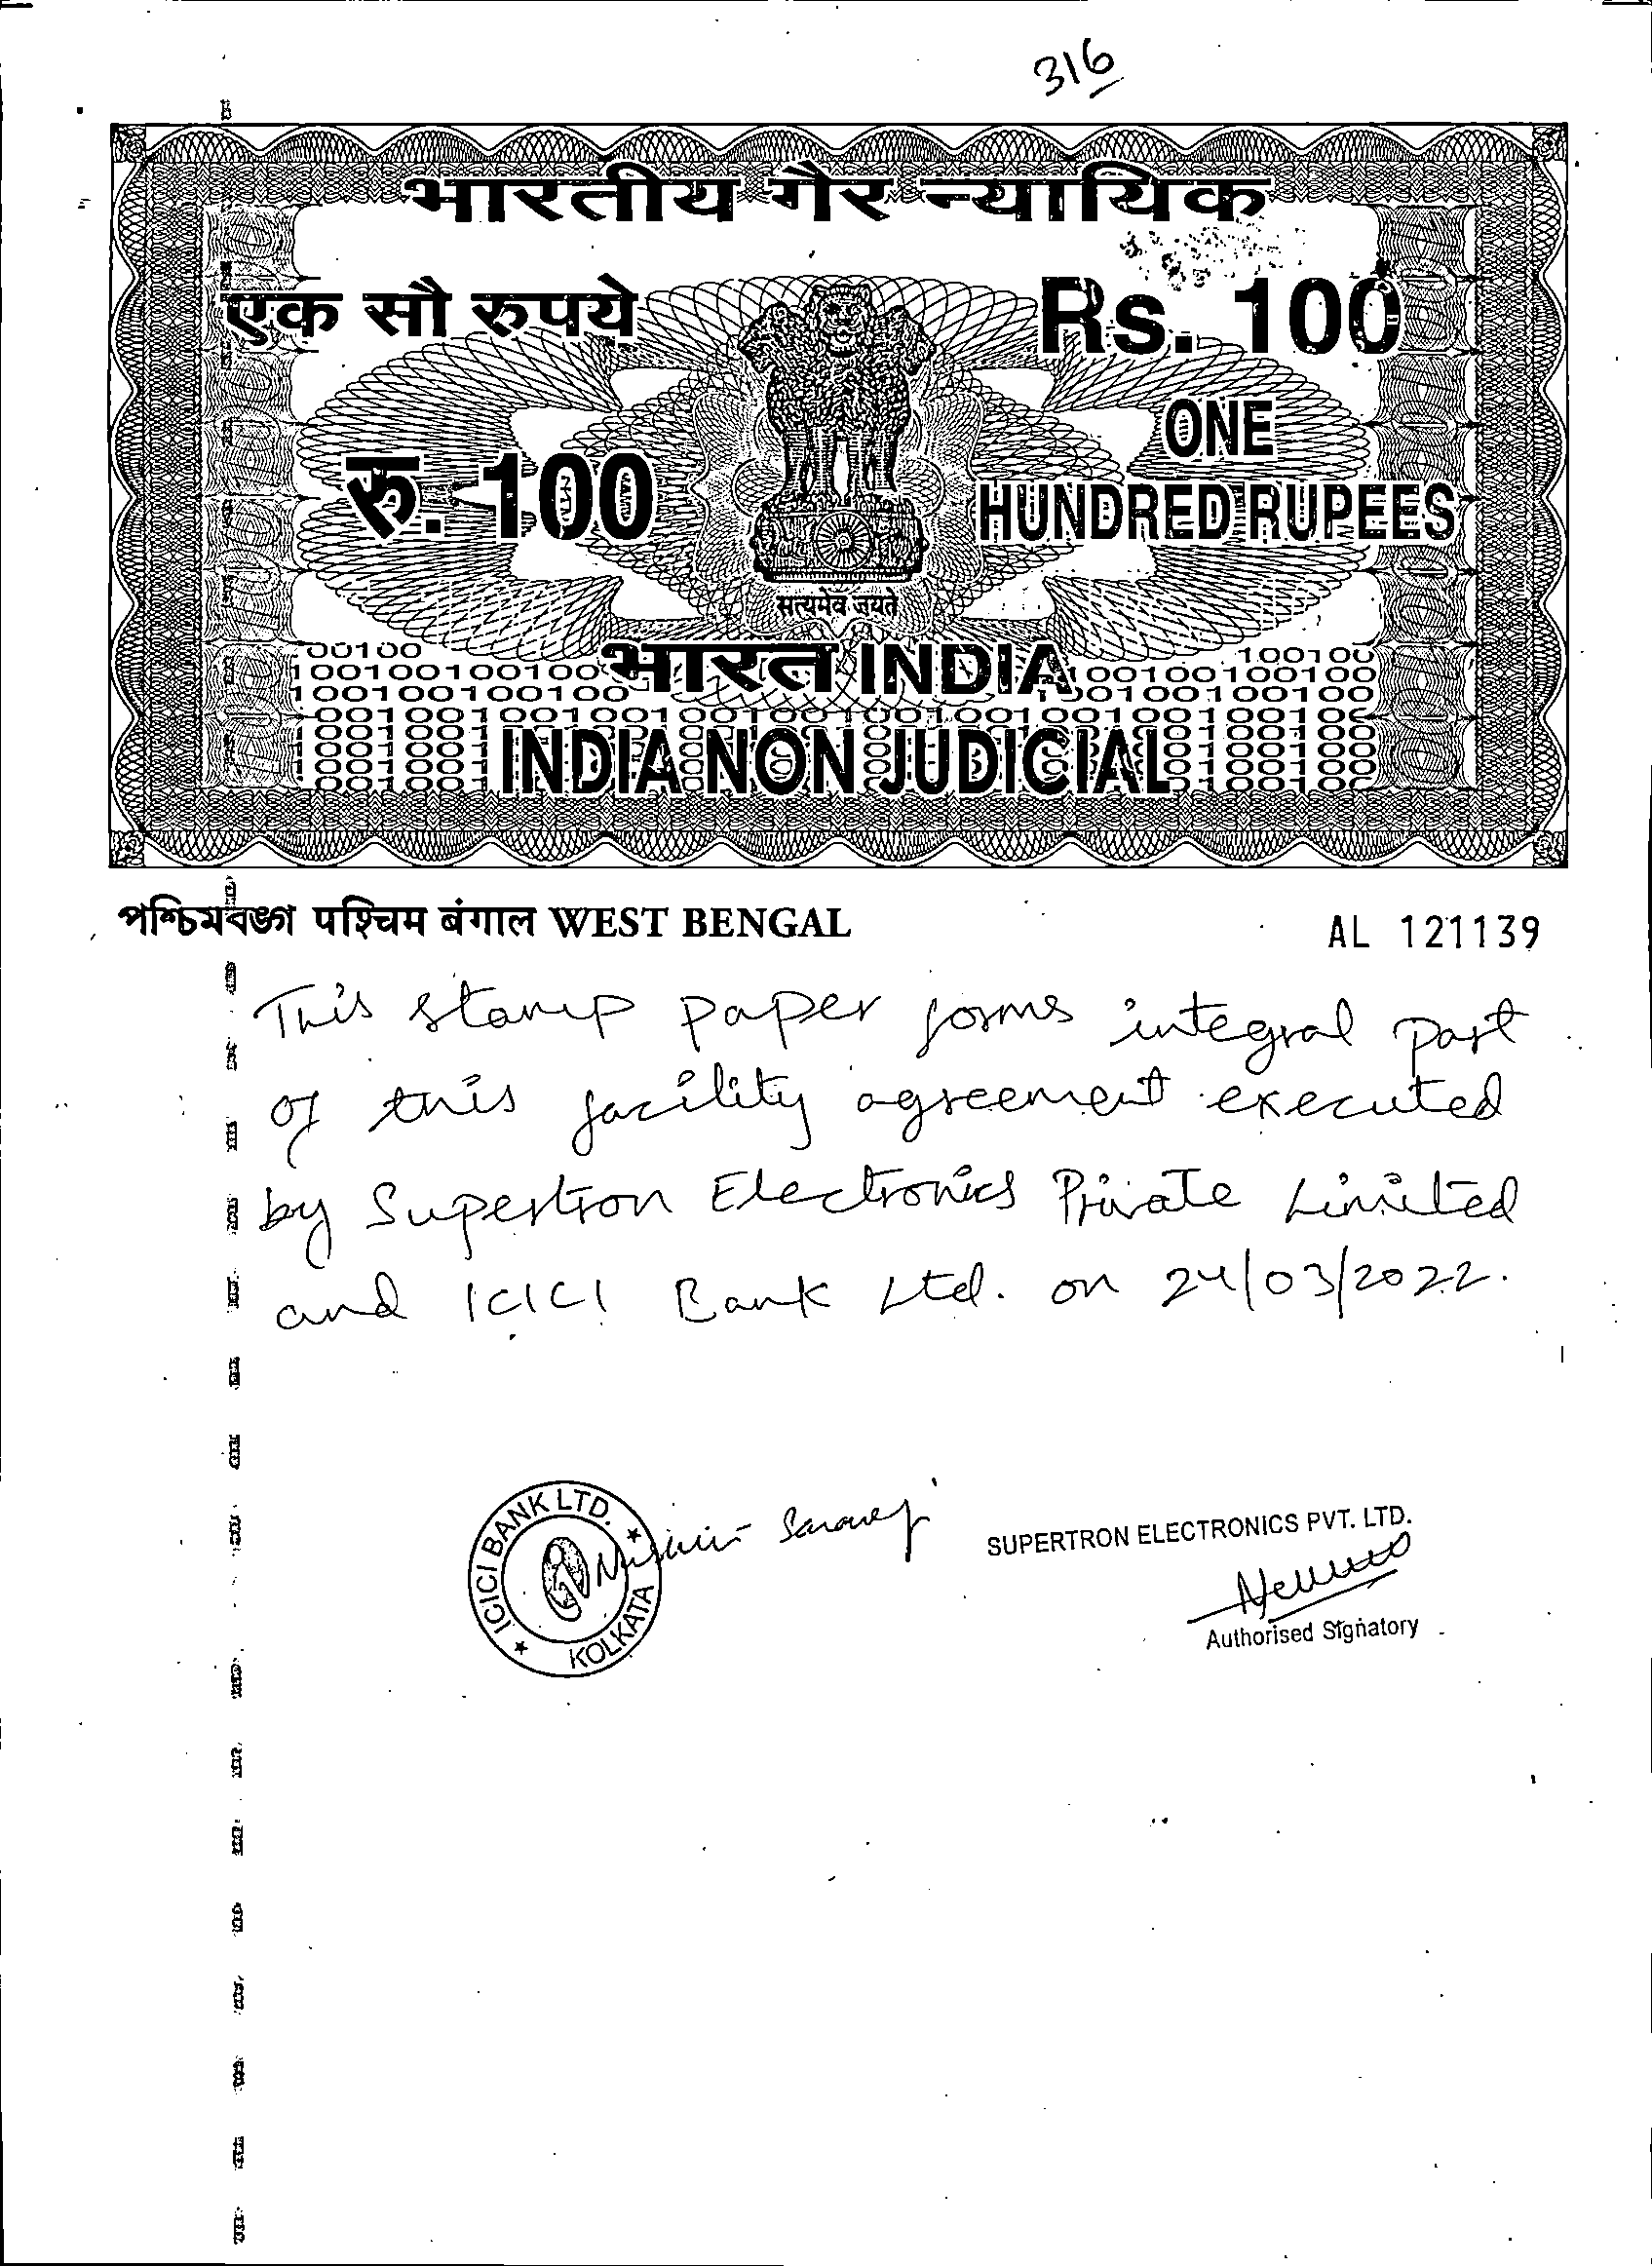 316
भारतीय गैर न्यायिक
एक सौ रुपये
Rs. 100
रु. 100
ONE
HUNDRED RUPEES
सत्यमेव जयते
भारत INDIA
INDIA NON JUDICIAL
পশ্চিমবঙ্গ पश्चिम बंगाल WEST BENGAL
AL 121139
This stamp paper forms integral part
of this facility agreement executed
by Supertron Electronics Private Limited
and ICICI Bank Ltd. on 24/03/2022.
ICICI BANK LTD.
KOLKATA
SUPERTRON ELECTRONICS PVT. LTD.
Authorised Signatory